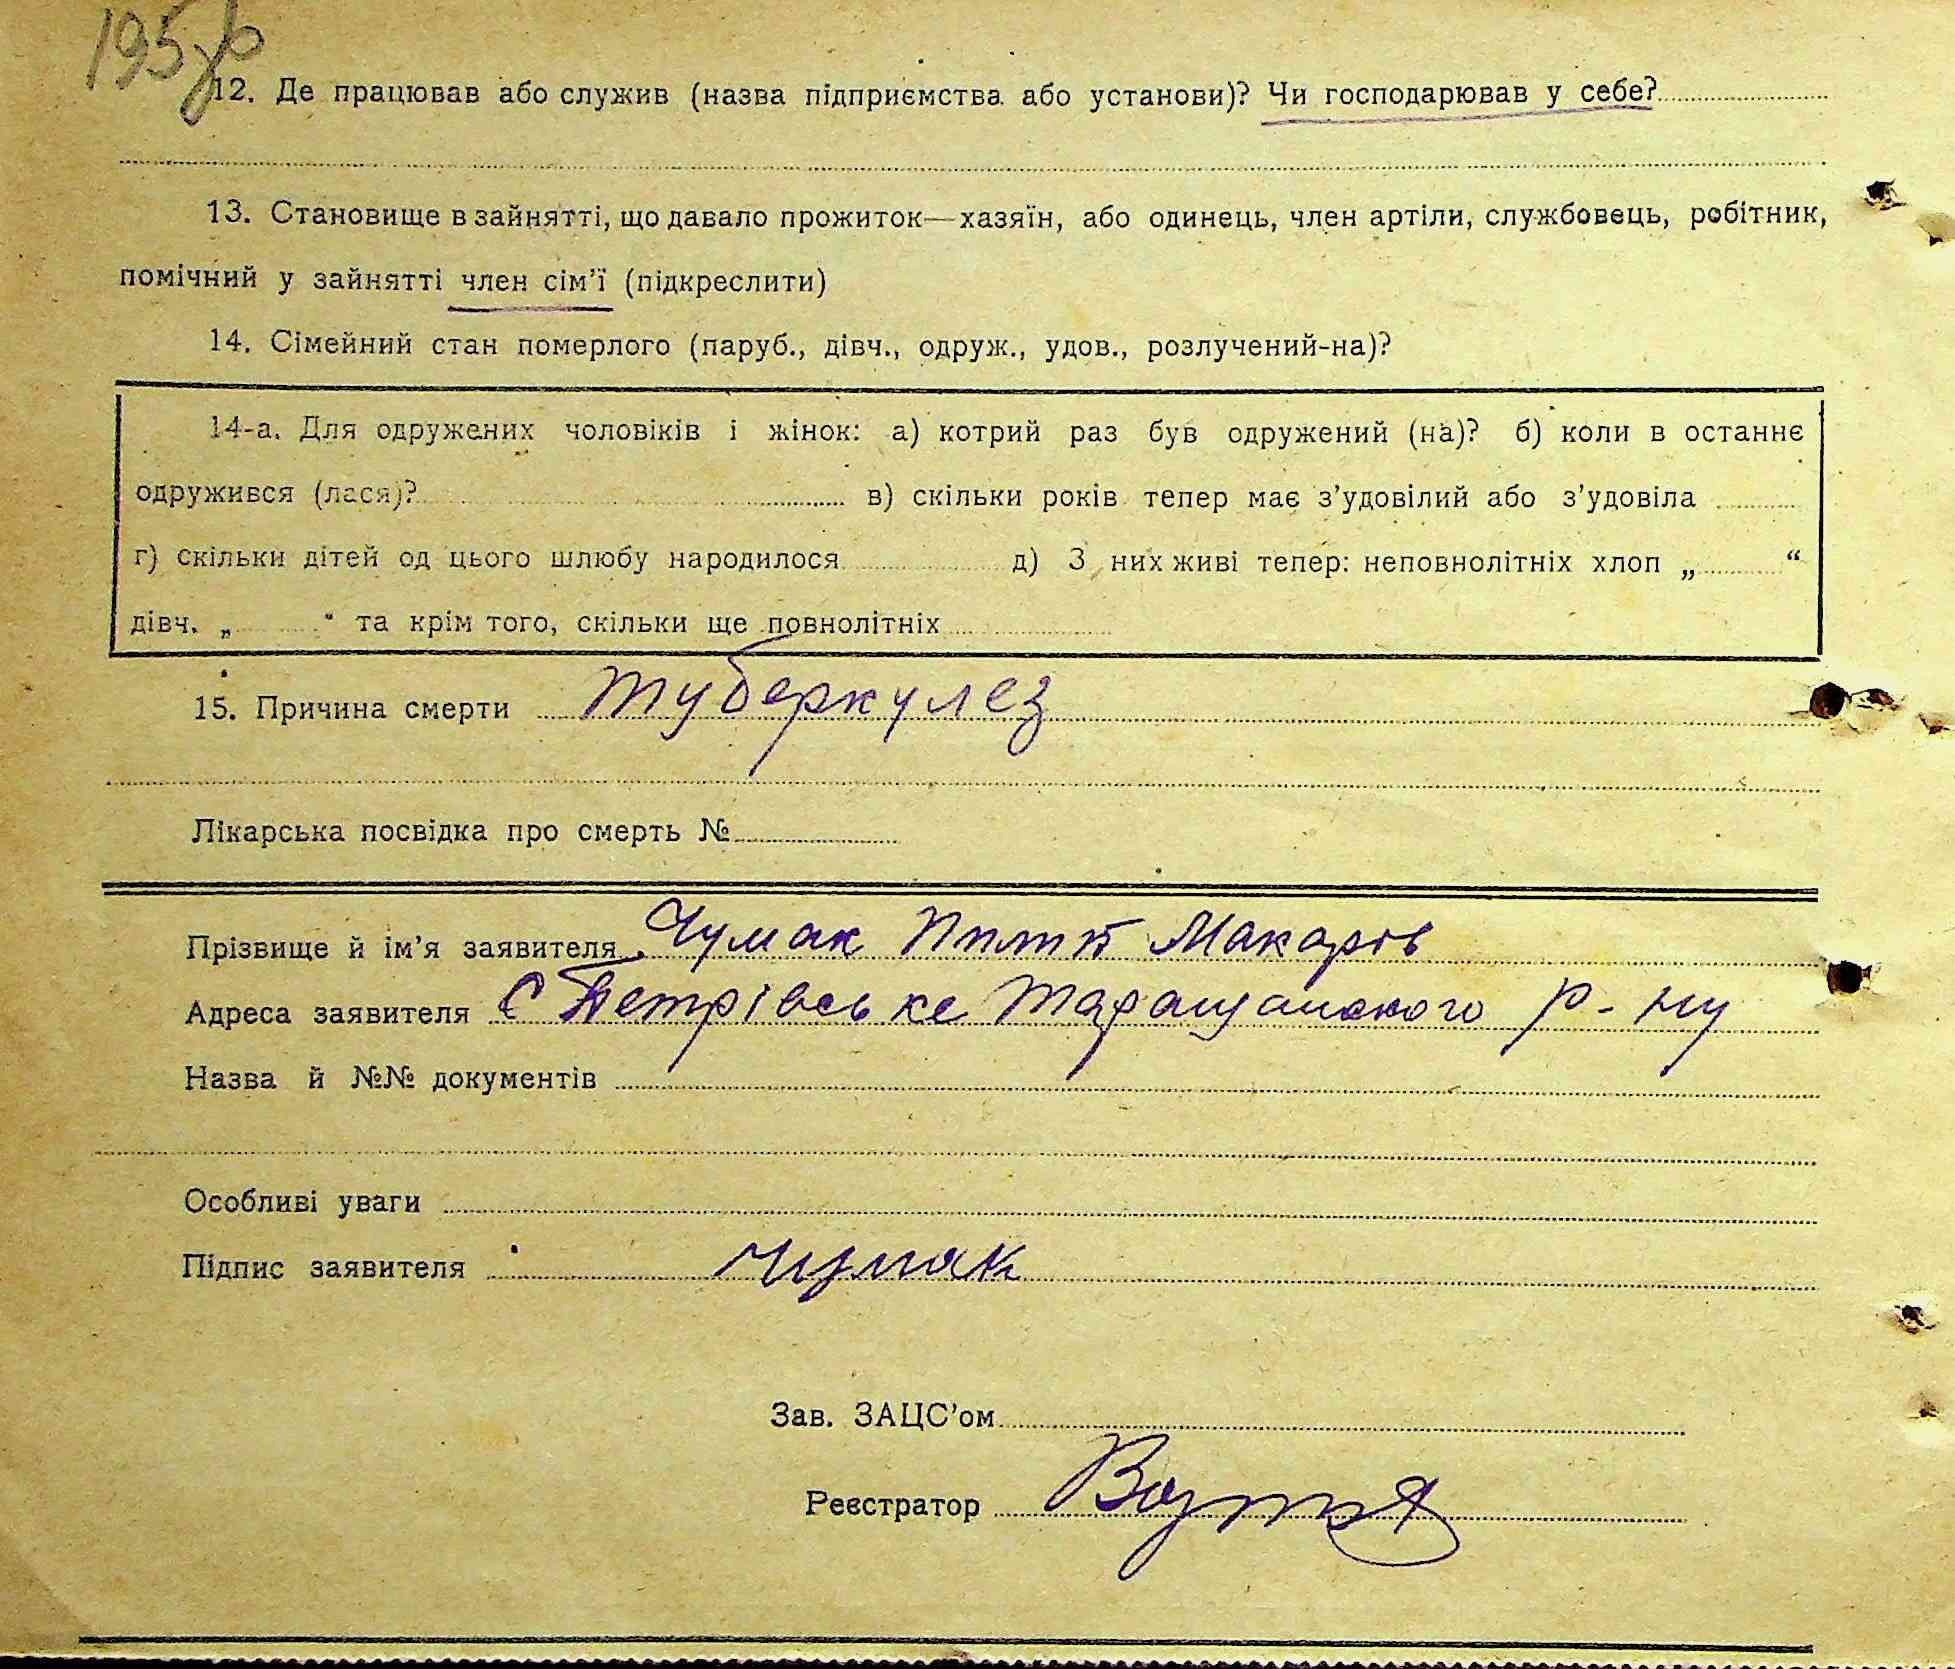 195зв
12. Де працював або служив (назва підприємства або установи)? Чи господарював у себе?
13. Становище в зайнятті, що давало прожиток—хазяїн, або одинець, член артіли, службовець, робітник,
помічний у зайнятті член сім'ї (підкреслити)
14. Сімейний стан померлого (паруб., дівч., одруж., удов., розлучений-на)?
14-а. Для одружених чоловіків і жінок: а) котрий раз був одружений (на)? б) коли в останнє
одружився (лася)? в) скільки років тепер має з'удовілий або з'удовіла
г) скільки дітей од цього шлюбу народилося д) З них живі тепер: неповнолітніх хлоп „ “
дівч. „ “ та крім того, скільки ще повнолітніх
15. Причина смерти туберкулез
Лікарська посвідка про смерть №
Прізвище й ім'я заявителя Чумак Пилип Макарів
Адреса заявителя С Петрівське Таращанского р-ну
Назва й №№ документів
Особливі уваги
Підпис заявителя Чумак
Зав. ЗАЦС'ом
Реєстратор